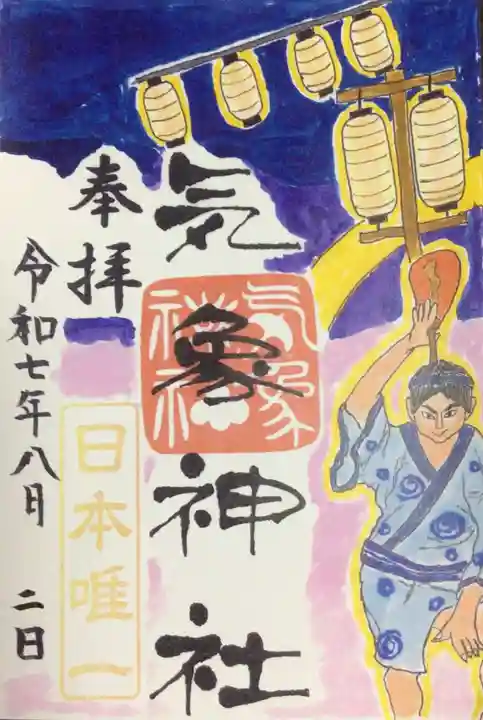 気象神社
奉拝
日本唯一
令和七年八月 二日
気象神社